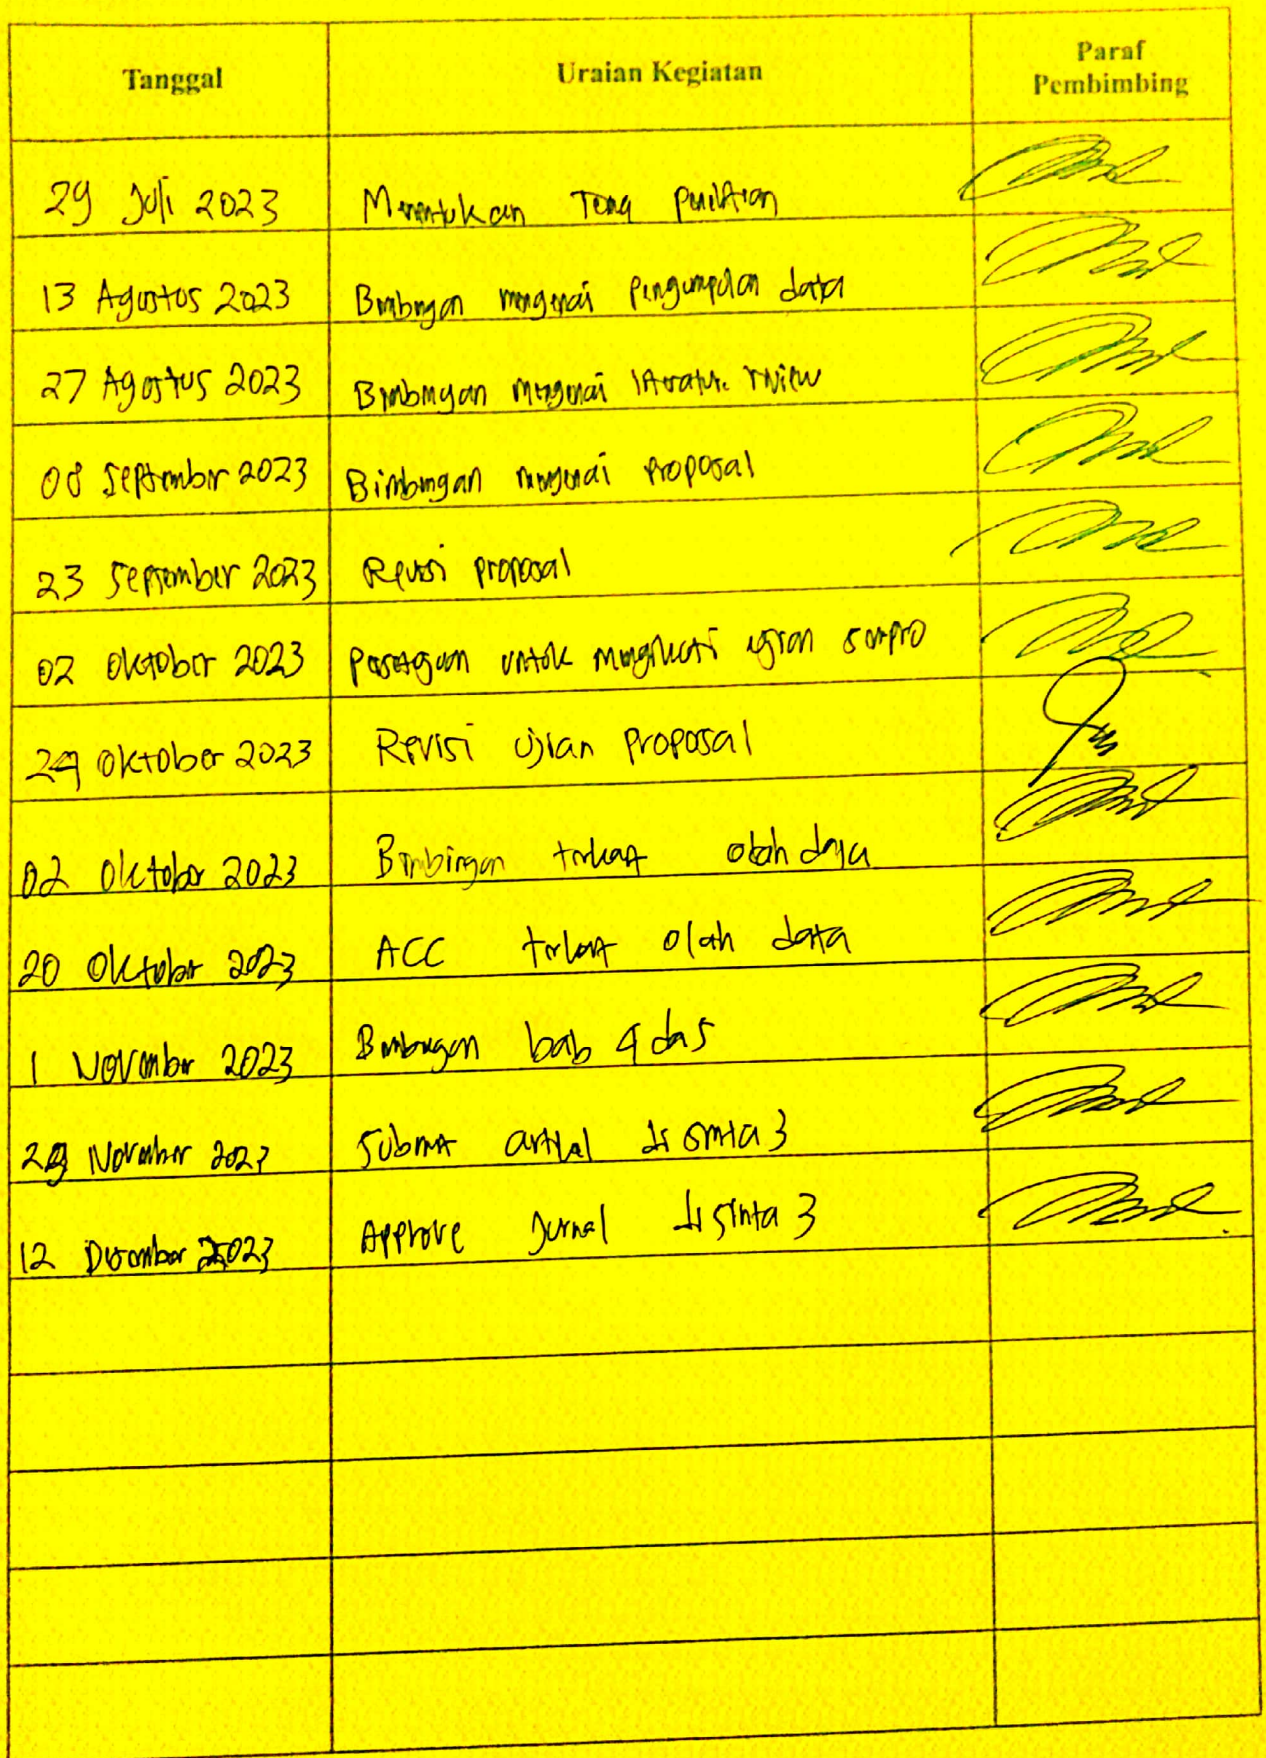 Tanggal Uraian Kegiatan Paraf
Pembimbing
29 Juli 2023 Menentukan Tema penelitian
13 Agustus 2023 Bimbingan mengenai pengumpulan data
27 Agustus 2023 Bimbingan mengenai literature review
08 September 2023 Bimbingan mengenai proposal
23 September 2023 Revisi proposal
02 Oktober 2023 Persetujuan untuk mengikuti ujian sempro
Oktober 2023 Revisi Ujian Proposal
02 Oktober 2023 Bimbingan terkait olah data
20 Oktober 2023 ACC terkait olah data
1 November 2023 Bimbingan bab 4 da 5
November 2023 Submit artikel di sinta 3
12 Desember 2023 Approve Jurnal di sinta 3